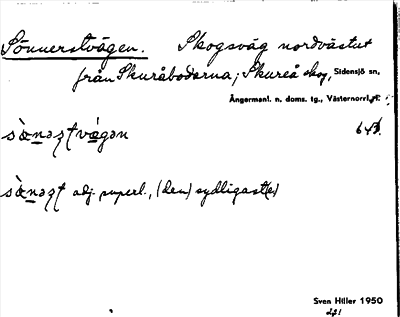 Sönnerstvägen. Skogsväg nordvästut
från Skuråbodarna; Skureå skog, Sidensjö sn,
Ångermanl. n. doms. tg., Västernorrl.
sènəʒtvégən
sènəʒt adj. superl., (den) sydligast(e)
Sven Hiller 1950